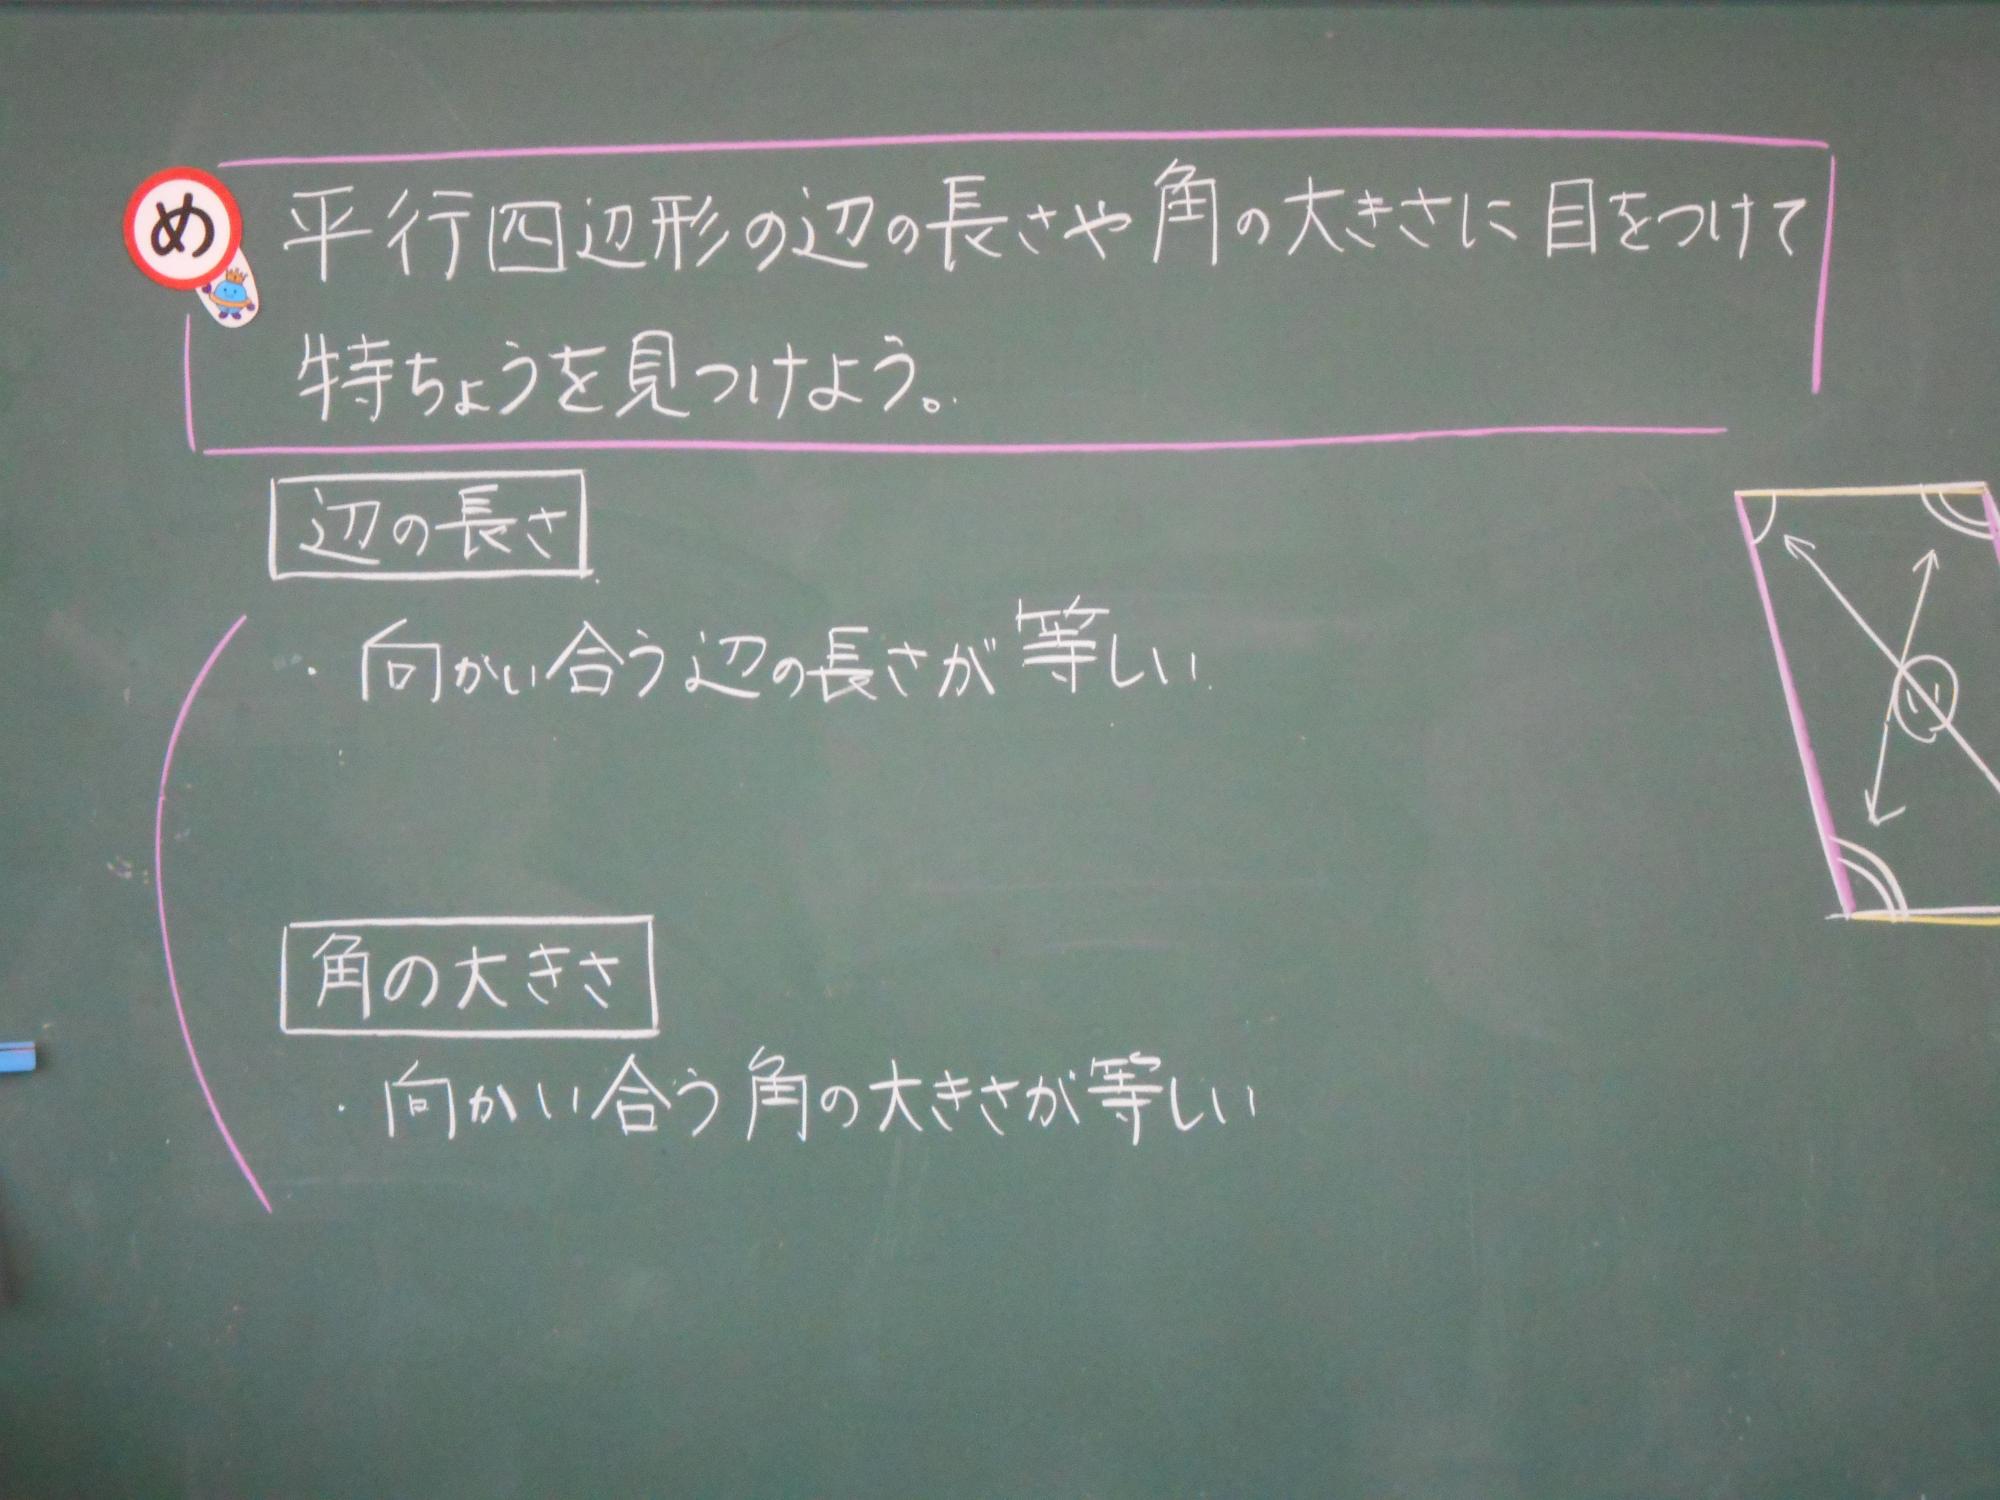 め
平行四辺形の辺の長さや角の大きさに目をつけて
特ちょうを見つけよう。
辺の長さ
・向かい合う辺の長さが等しい
角の大きさ
・向かい合う角の大きさが等しい